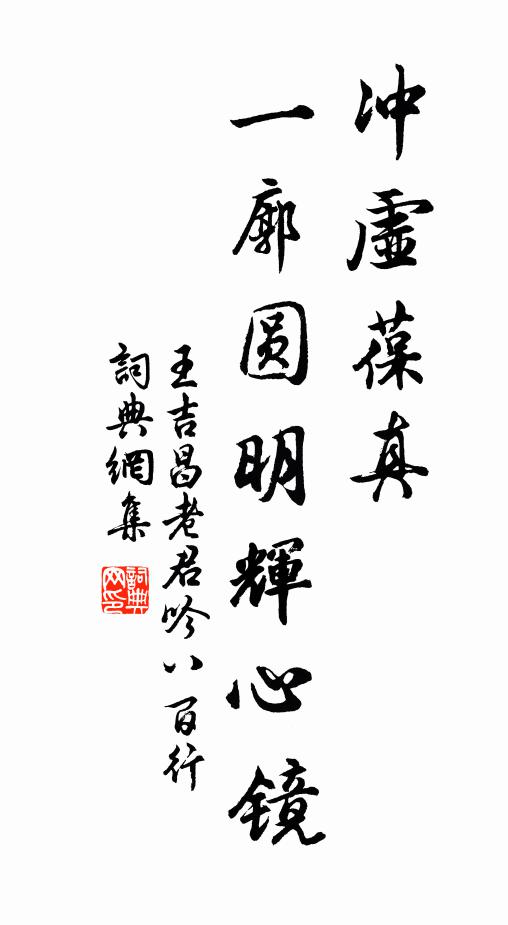 冲虛葆真
一廓圆明輝心镜
王吉昌老君吟八百行
詞典網集
詞典网印